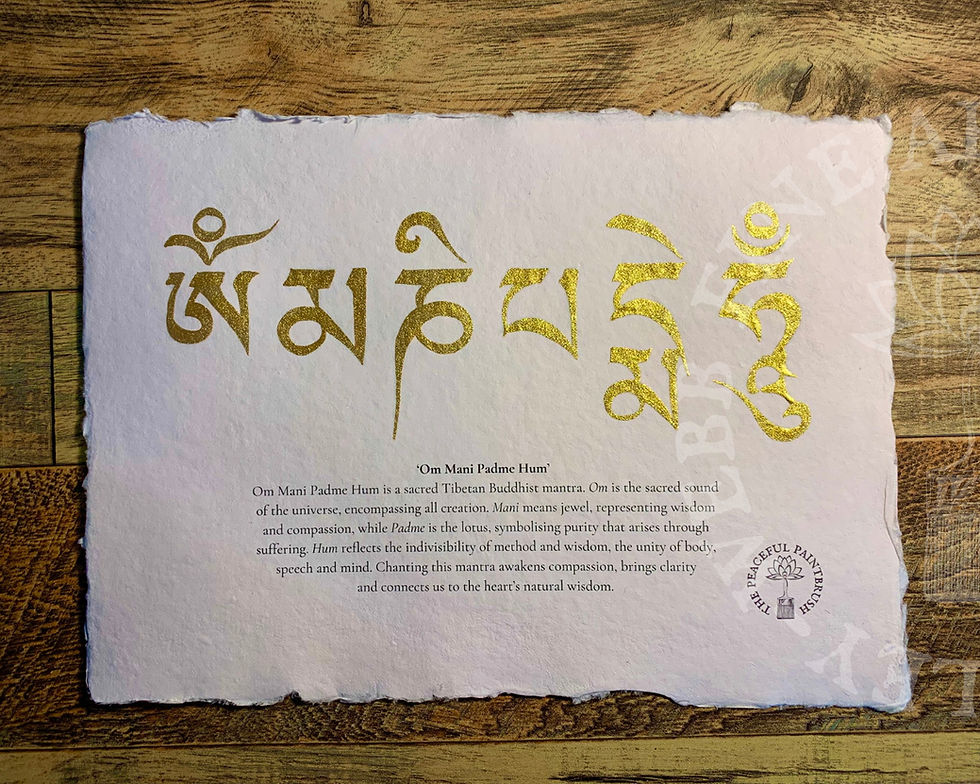 ༀ མ ཎི པ དྨེ ཧཱུྃ
‘Om Mani Padme Hum’
Om Mani Padme Hum is a sacred Tibetan Buddhist mantra. Om is the sacred sound
of the universe, encompassing all creation. Mani means jewel, representing wisdom
and compassion, while Padme is the lotus, symbolising purity that arises through
suffering. Hum reflects the indivisibility of method and wisdom, the unity of body,
speech and mind. Chanting this mantra awakens compassion, brings clarity
and connects us to the heart’s natural wisdom.
THE PEACEFUL PAINTBRUSH